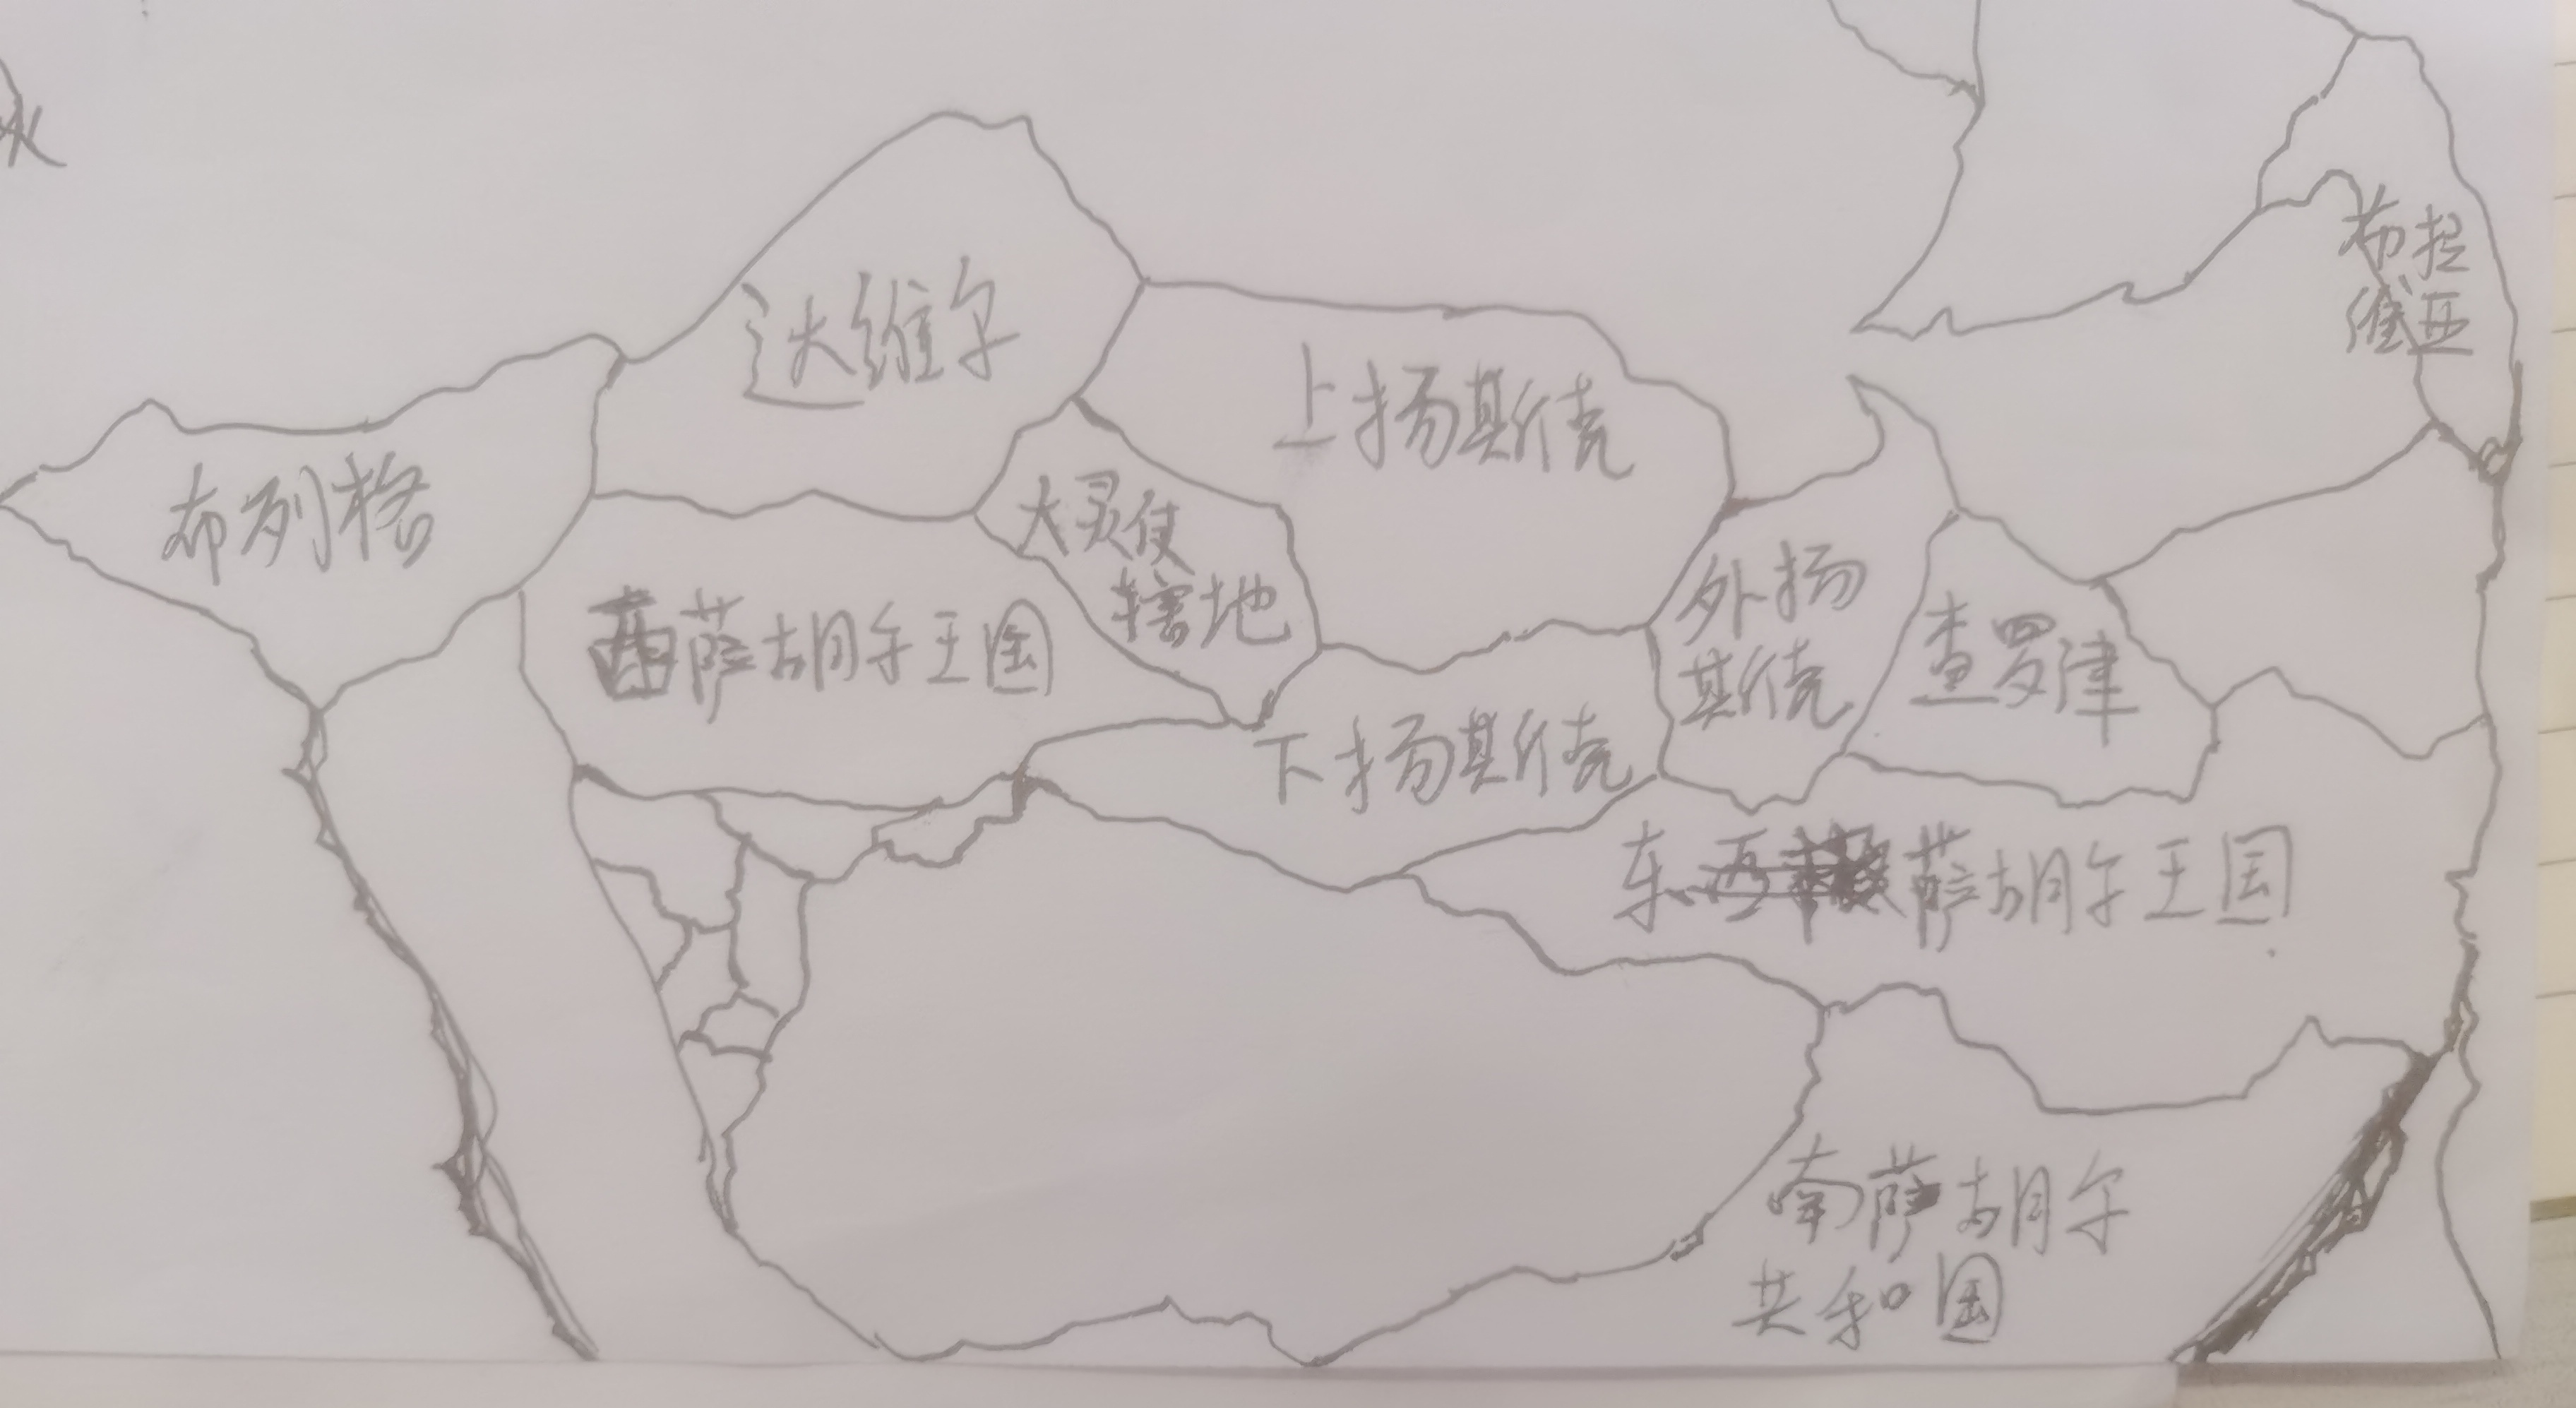 达维尔
布拉
维亚
上扬斯克
布列格
大灵使
辖地
外扬
斯克
查罗津
西萨胡尔王国
下扬斯克
东萨胡尔王国
南萨胡尔
共和国